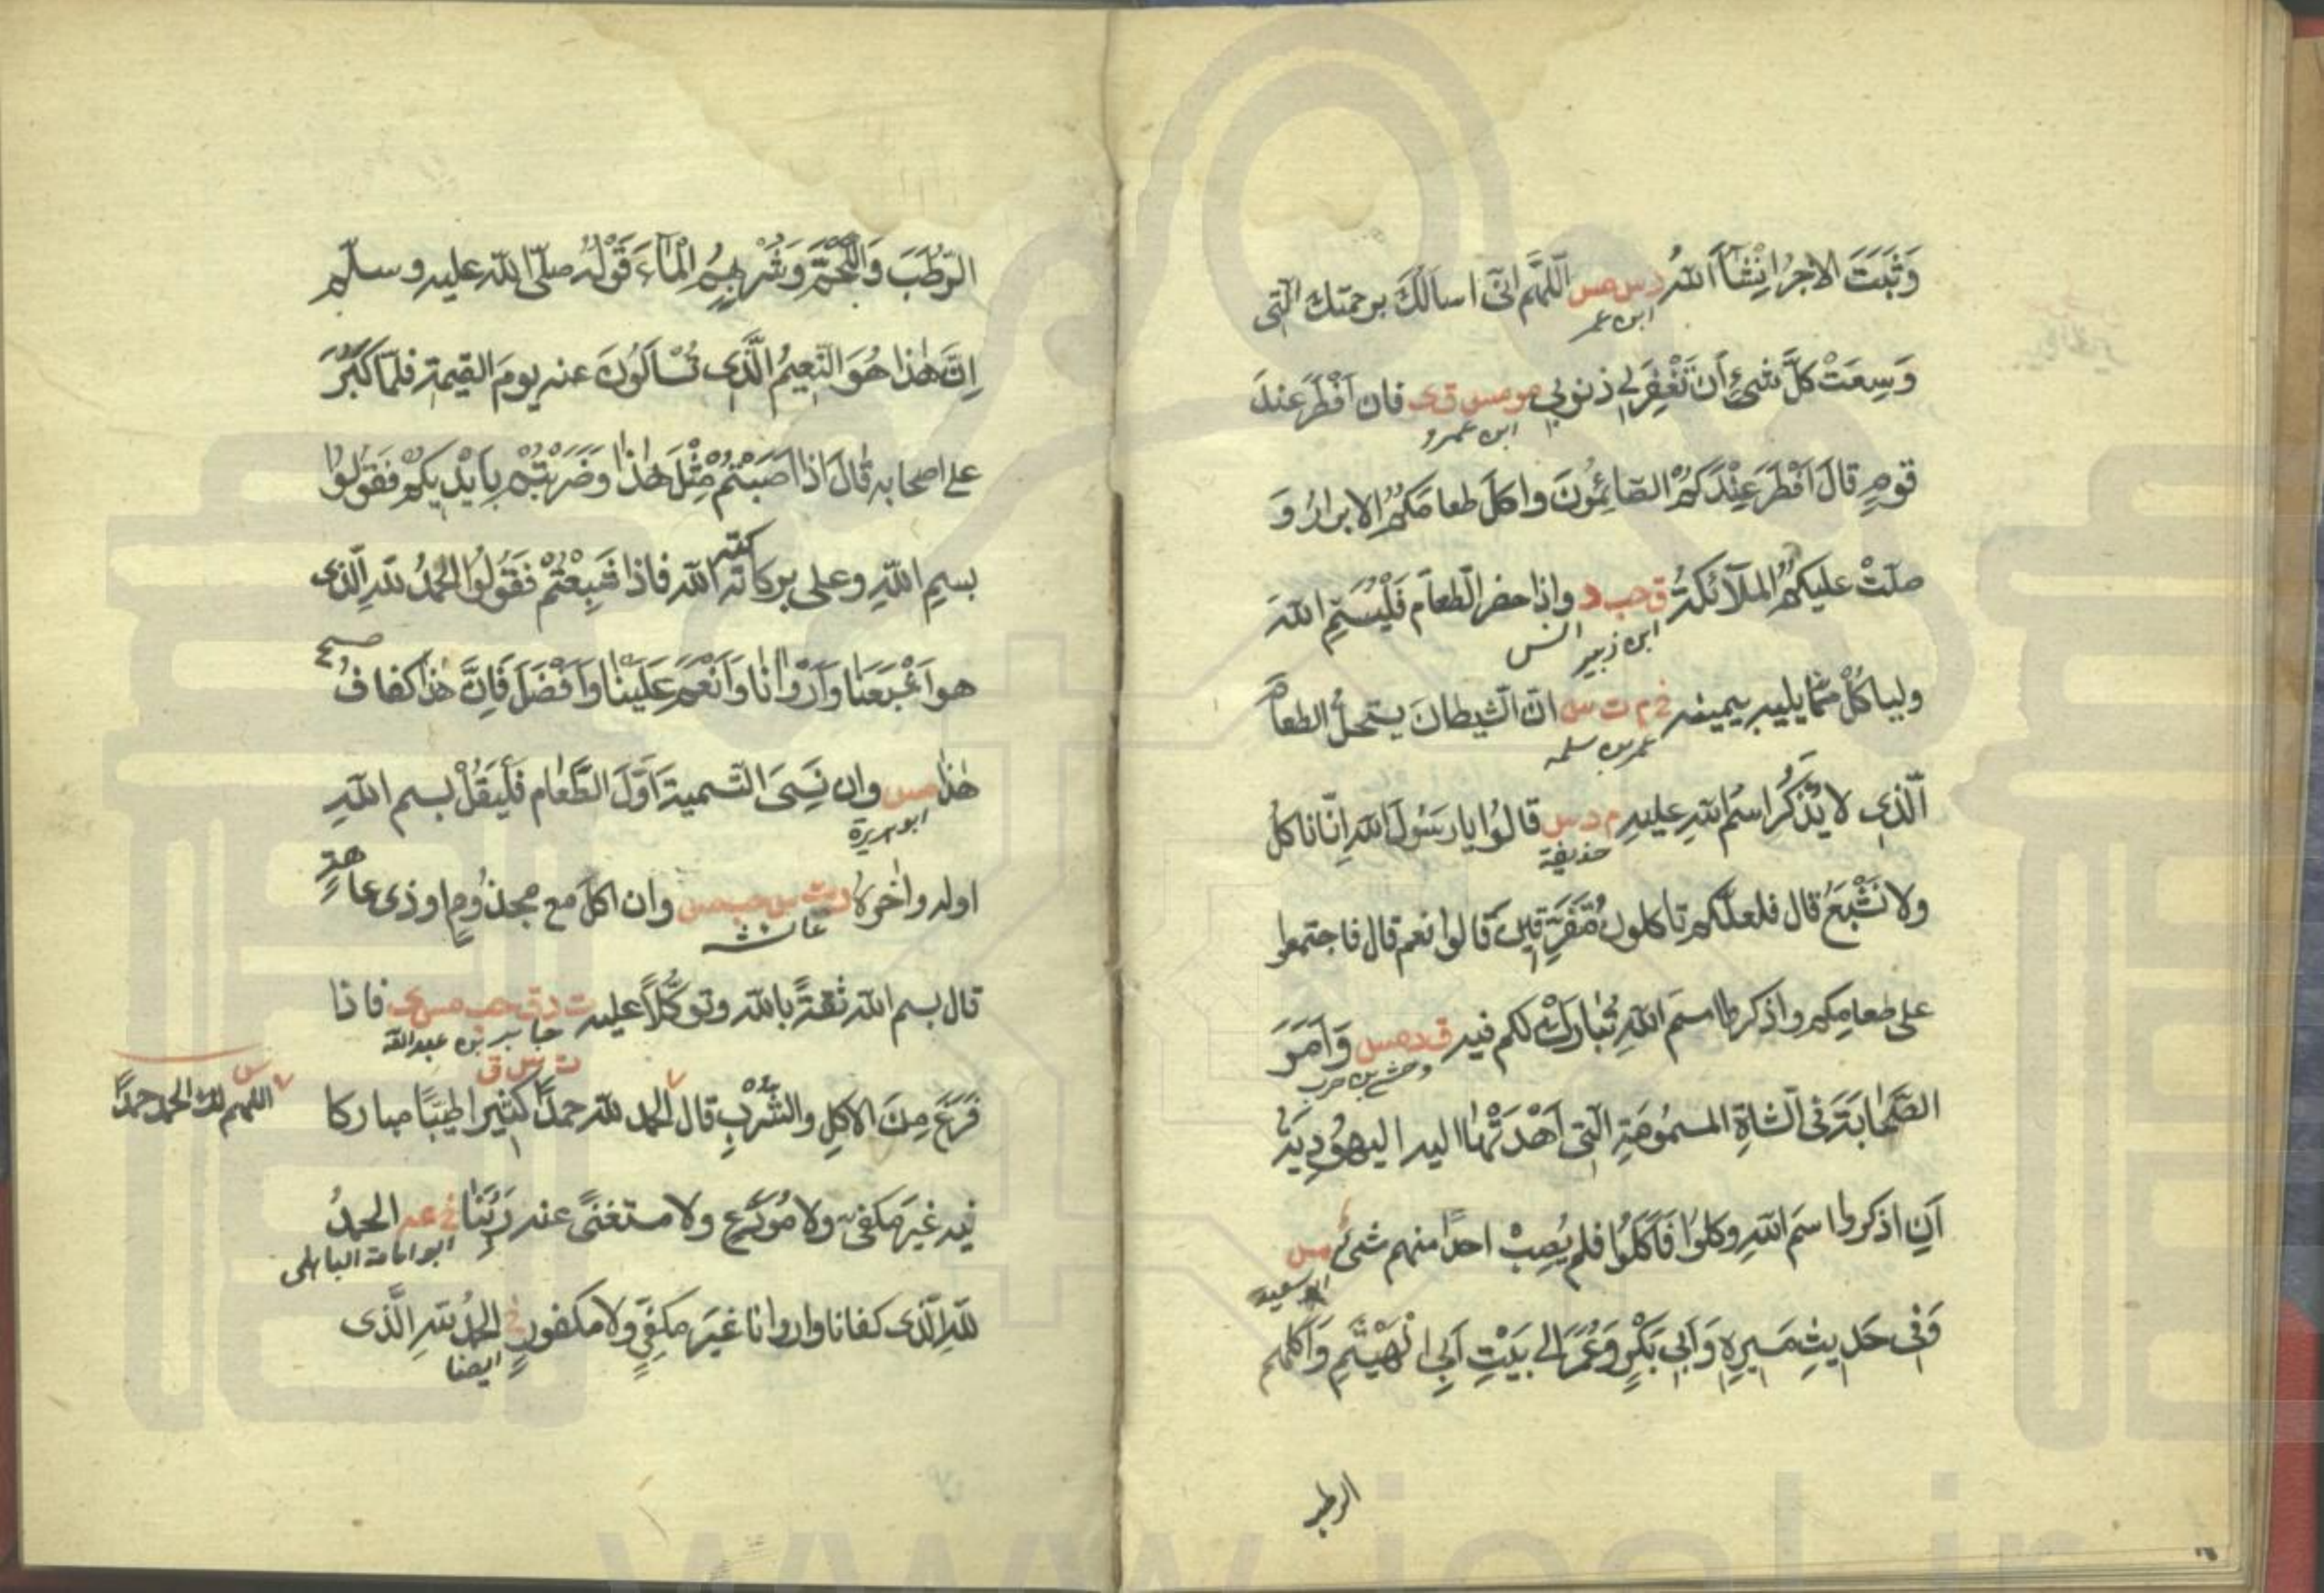 وَثَبَتَ الاَجرُ اِنْشَآاَللّٰهُ د س مس اَللّٰهُم اِنّى اسالكَ برحمتك الّتى
ابن عمر
وَسِعَتْ كلَّ شىءٍ اَن تَغْفِرَ لِى ذنوبى مو مس ق ى فان اَفْطَرَ عِندَ
ابن عمرو
قومٍ قالَ اَفْطَرَ عِنْدَكُمُ الصّائِمُونَ واكلَ طعامَكُمُ الابرارُ وَ
صلّتْ عليكُمُ الملآئكةُ ق حب د واِذا حضر الطعام فَلْيُسَمِّ اللّٰهَ
ابن زبير انس
ولياكُلْ مِمّا يليهِ بيمينه خ م ت س انّ الشيطانَ يستحلُّ الطعامَ
عمر بن سلمه
اَلّذى لا يُذْكَرُ اسمُ اللّٰهِ عليهِ م د س قالُوا يارسُولَ اللّٰهِ اِنّا ناكلُ
حذيفة
ولا نَشْبَعُ قال فلعلّكم تاكلونَ مُتَفَرِّقِينَ قالوا نعم قال فاجتمعوا
على طعامِكم واذكروا اسمَ اللّٰهِ يُبارَكْ لكم فيه ق د مس وَاَمَرَ
وحشى بن حرب
الصَّحابَةَ فى الشاةِ المسمُومَةِ الّتى اَهْدَتْها اليه اليهُوديةُ
اَنِ اذكروا اسمَ اللّٰهِ وكلوُا فَاَكَلُوا فلم يُصِبْ احدًا منهم شىءٌ مس
ابو سعيد
وَفى حَديثِ مَسيرِهٖ وَاَبى بَكْرٍ وَعُمَرَ الى بَيْتِ اَبِى الْهَيْثَمِ وَاَكلهم
الرطب
الرّطَبَ وَاللَّحْمَ وَشُرْبِهِمُ الْمَآءَ قَوْلُه صلّى اللّٰه عليه وسلّم
اِنَّ هٰذا هُوَ النَّعِيمُ الَّذى تُسْاَلُونَ عنه يومَ القيٰمة فلمّا كَبُرَ
على اصحابه قالَ اذا اَصَبْتُمْ مِثْلَ هٰذا وضَرَبْتُمْ بِاَيْديكُمْ فَقولُوا
بسمِ اللّٰهِ وعلى بركاتة اللّٰه فاذا شَبِعْتُمْ فَقُولُوا الحمدُ للّٰه الّذى
كته
هو اَشْبَعَنا وَاَرْوانا وَاَنْعَمَ عَلَيْنا وَاَفْضَلَ فَاِنَّ هٰذا كفافُ
صح
هٰذا مس وان نَسِىَ التسميةَ اَوَّلَ الطَّعام فَليَقُلْ بسم اللّٰهِ
ابو هريرة
اوله واٰخره د ت س حب مس وان اكلَ مع مجذُومٍ او ذى عاهةٍ
عائشه
قال بسم اللّٰه ثقةً باللّٰه وتوكُّلاً عليه ت د ق حب مس ى فاذا
جابر بن عبدالله
ت س ق
فَرَغَ مِنَ الاكلِ والشُّرْبِ قال الحمد للّٰه حمدًا كثيرا طيّبًا مباركا
س اللّٰهم لك الحمد حمدًا
فيه غيرَ مكفىٍّ ولا مُودَّعٍ ولا مستغنىً عنه رَبَّنا خ عه الحمدُ
ابو امامة الباهلى
للّٰهِ الَّذى كفانا واروانا غيرَ مكفىٍّ ولا مكفورٍ خ الحمدُ للّٰهِ الَّذى
ايضا